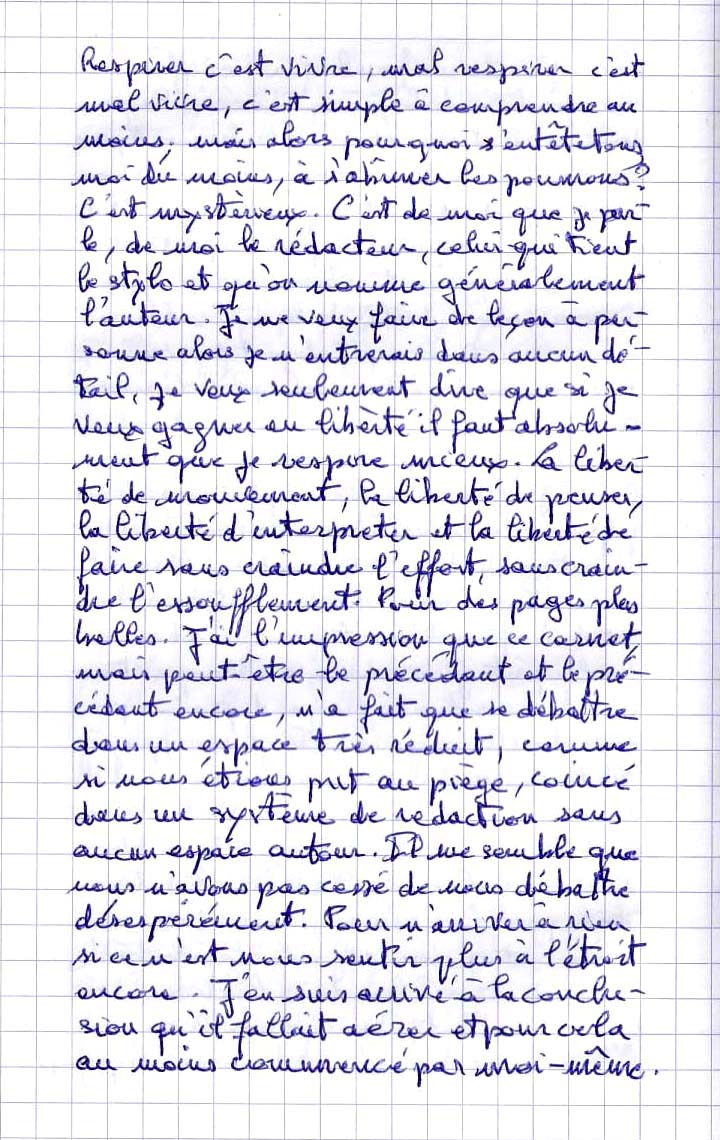 Respirer c'est vivre, mal respirer c'est
mal vivre, c'est simple à comprendre au
moins, mais alors pourquoi s'entêtetons,
moi du moins, à s'abimer les poumons?
C'est mystérieux. C'est de moi que je par-
le, de moi le rédacteur, celui qui tient
le stylo et qu'on nomme généralement
l'auteur. Je ne veux faire de leçon à per-
sonne alors je n'entrerais dans aucun dé-
tail, je veux seulement dire que si je
veux gagner en liberté il faut absolu-
ment que je respire mieux. La liber-
té de mouvement, la liberté de penser,
la liberté d'interpréter et la liberté de
faire sans craindre l'effort, sans crain-
dre l'essoufflement. Pour des pages plus
belles. J'ai l'impression que ce carnet,
mais peut-être le précédant et le pré-
cédant encore, n'a fait que se débattre
dans un espace très réduit, comme
si nous étions prit au piège, coincé
dans un système de rédaction sans
aucun espace autour. Il me semble que
nous n'avons pas cessé de nous débattre
désespérément. Pour n'arriver à rien
si ce n'est nous sentir plus à l'étroit
encore. J'en suis arrivé à la conclu-
sion qu'il fallait aérer et pour cela
au moins commencé par moi-même.